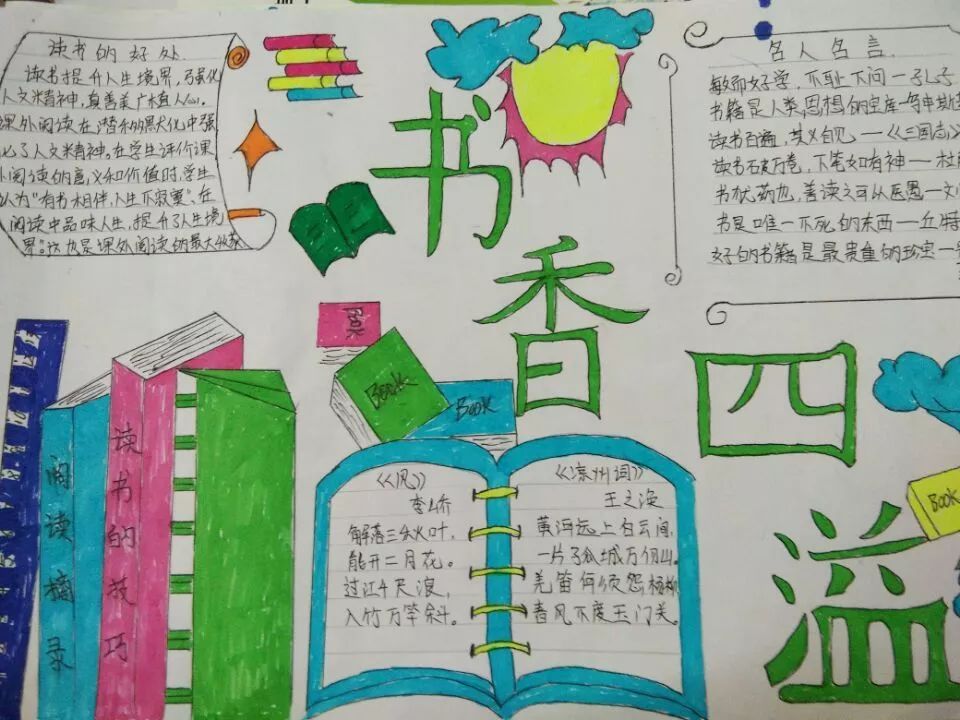 读书的好处
读书提升人生境界，强化
人文精神，真善美广植人心。
课外阅读在潜移默化中强
化了人文精神。在学生评价课
外阅读的意义和价值时，学生
认为“有书相伴，人生不寂寞”、在
阅读中品味人生，提升了人生境
界。这也是课外阅读的最大收获
书
香
四
溢
名人名言
敏而好学，不耻下问一孔子
书籍是人类思想的宝库一
读书百遍，其义自见——《三国志》
读书破万卷，下笔如有神——杜
书犹药也，善读之可从医愚一
书是唯一不死的东西——丘特
好的书籍是最贵重的珍宝一
阅读摘录
读书的技巧
BOOK
BOOK
BOOK
《风》
李峤
解落三秋叶，
能开二月花。
过江千尺浪，
入竹万竿斜。
《凉州词》
王之涣
黄河远上白云间，
一片孤城万仞山。
羌笛何须怨杨柳
春风不度玉门关。